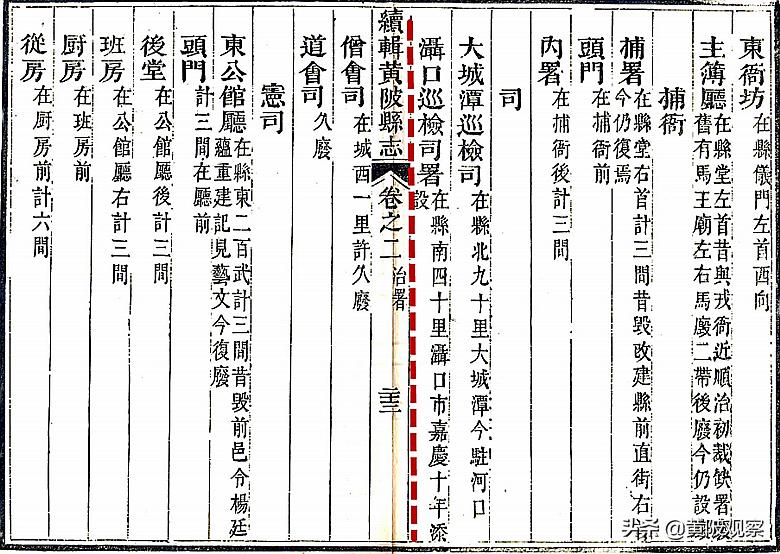 東衙坊 在縣儀門左首西向
主簿廳 在縣堂左首昔與戎衙近順治初裁缺署廢
舊有馬王廟左右馬廄二帶後廢今仍設
捕衙
捕署 在縣堂右首計三間昔毀改建縣前直街右
今仍復焉
頭門 在捕衙前
內署 在捕衙後計三間
司
大城潭巡檢司 在縣北九十里大城潭今駐河口
灄口巡檢司署 在縣南四十里灄口市嘉慶十年添
設
續輯黃陂縣志 卷之二 治署 二十三
僧會司 在城西一里許久廢
道會司 久廢
憲司
東公館廳 在縣東二百武計三間昔毀前邑令楊廷
蘊重建記見藝文今復廢
頭門 計三間在廳前
後堂 在公館廳後計三間
班房 在公館廳右計三間
厨房 在班房前
從房 在厨房前計六間
头条 @黄陂观察